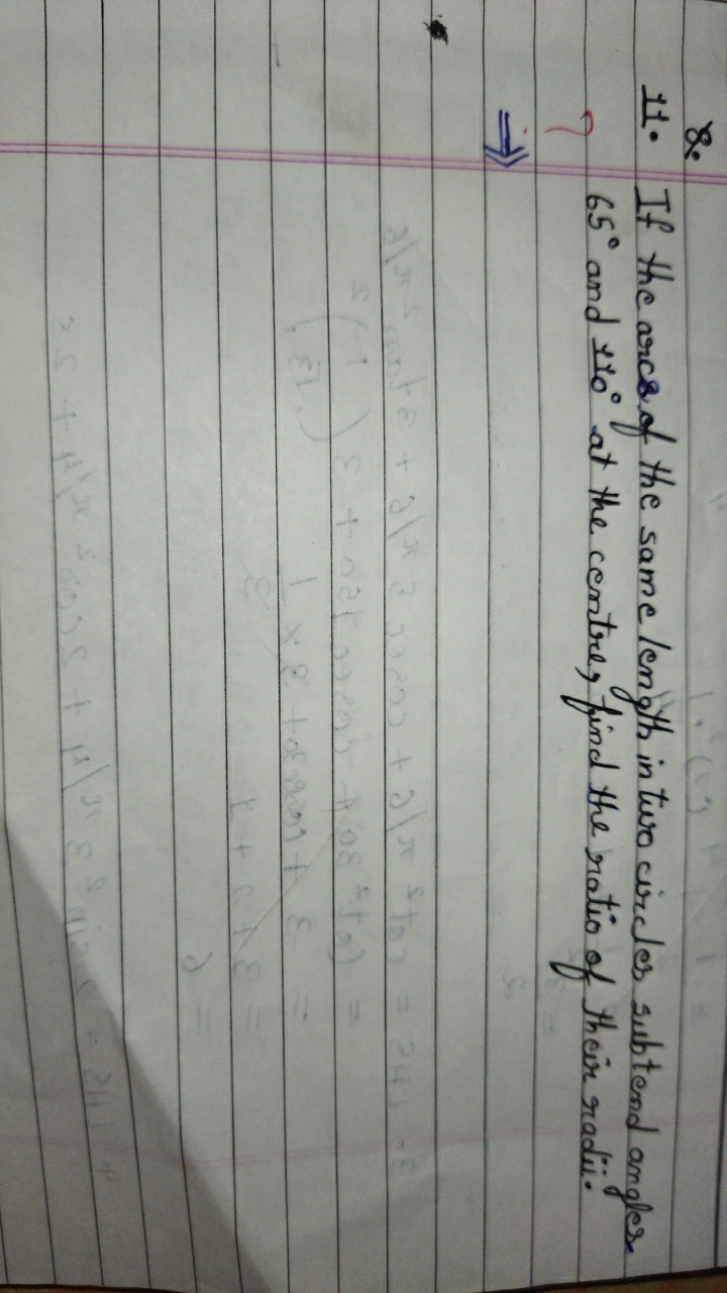 8.
11. If the arcs of the same length in two circles subtend angles
65° and 110° at the centre, find the ratio of their radii.
?
⇒